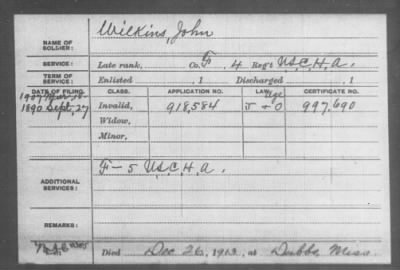 NAME OF SOLDIER: Wilkins, John
SERVICE: Late rank, Co. F, 4 Reg't U.S.C.H.A.
TERM OF SERVICE: Enlisted , 1 Discharged , 1
DATE OF FILING. CLASS. APPLICATION NO. LAW. Age CERTIFICATE NO.
1907
1890 Sept. 27 Invalid, 918,584 J + O 997,690
Widow,
Minor,
ADDITIONAL SERVICES: F-5 U.S.C.H.A.
REMARKS:
Died Dec 26, 1913, at Dubbs, Miss.